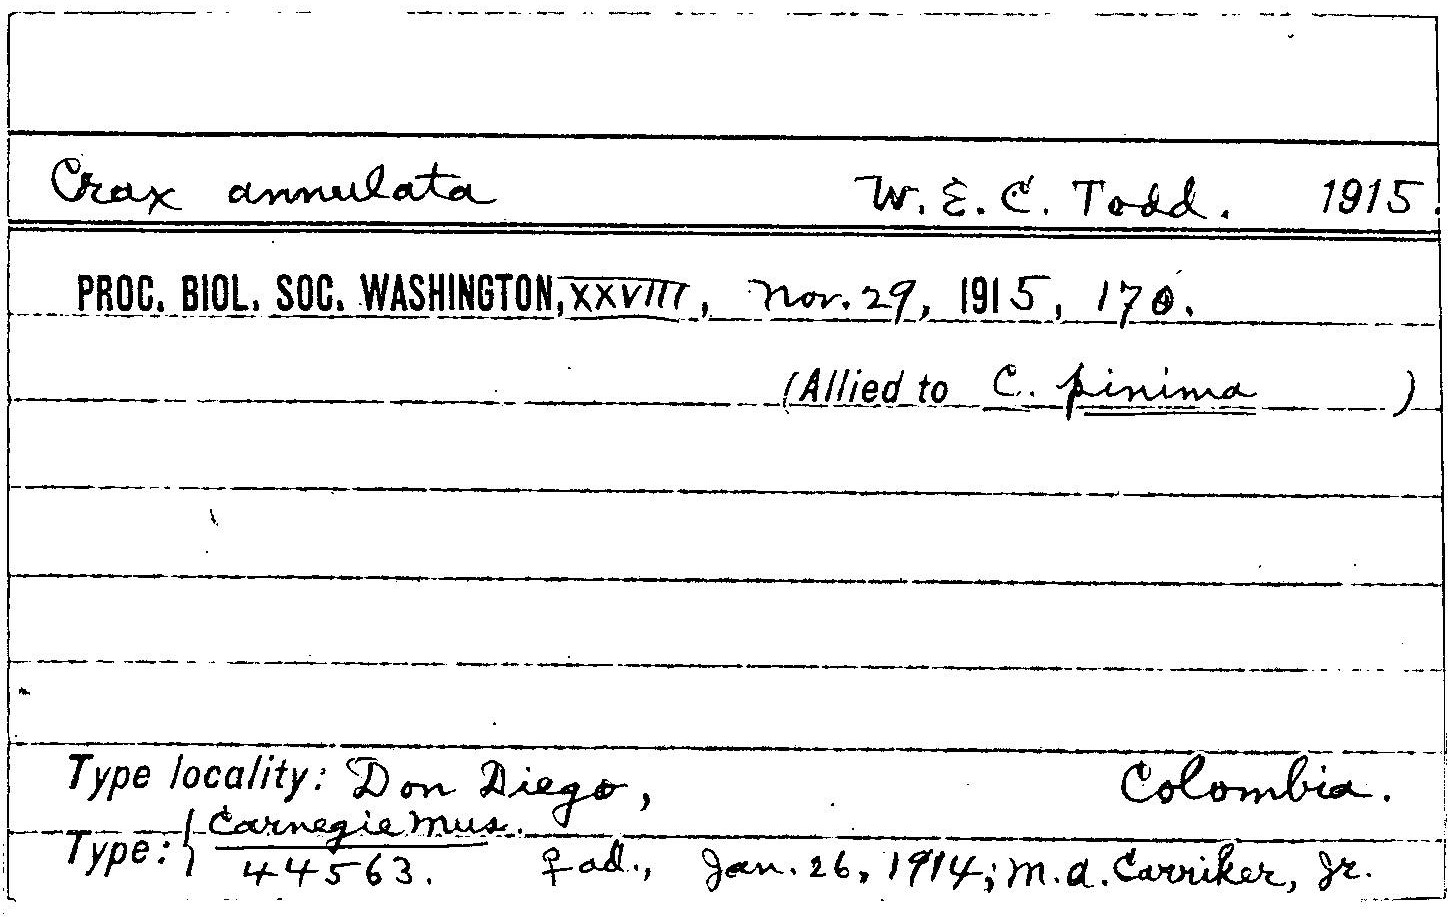 Crax annulata W. E. C. Todd. 1915.
PROC. BIOL. SOC. WASHINGTON, XXVIII, Nov. 29, 1915, 170.
(Allied to C. pinima )
Type locality: Don Diego, Colombia.
Type: { Carnegie Mus.
44563. ♀ ad., Jan. 26, 1914; M. A. Carriker, Jr.